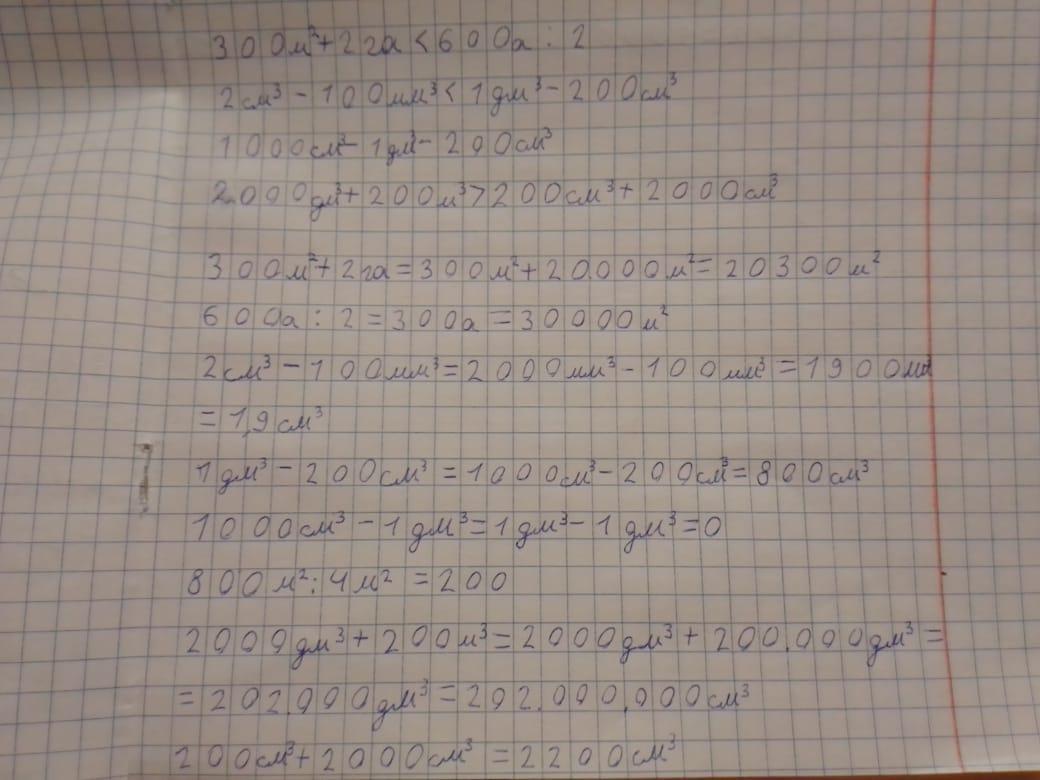 300м²+2га<600а:2
2см³-100мм³<1дм³-200см³
1000см³-1дм³-200см³
2.000дм³+200м³>200см³+2000см³
300м²+2га=300м²+20.000м²=20300м²
600а:2=300а=30000м²
2см³-100мм³=2000мм³-100мм³=1900мм³
=1,9см³
1дм³-200см³=1000см³-200см³=800см³
1000см³-1дм³=1дм³-1дм³=0
800м²:4м²=200
2000дм³+200м³=2000дм³+200.000дм³=
=202.000дм³=202.000.000см³
200см³+2000см³=2200см³